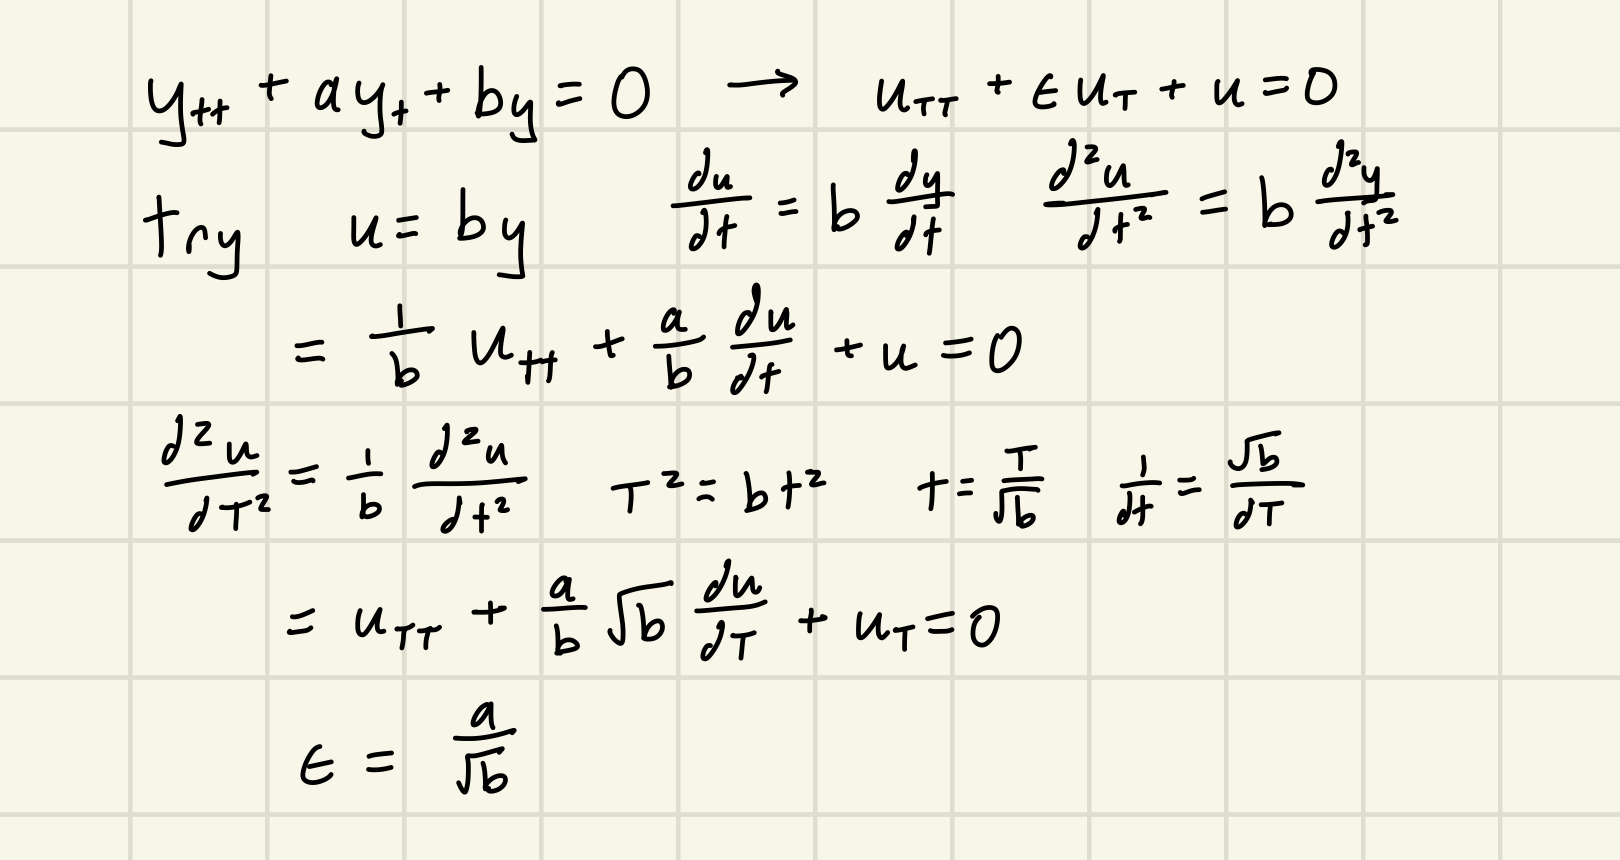 y_tt + a y_t + by = 0 → u_TT + ϵ u_T + u = 0
try u = by du/dt = b dy/dt d²u/dt² = b d²y/dt²
= 1/b u_tt + a/b du/dt + u = 0
d²u/dT² = 1/b d²u/dt² T² = bt² t = T/√b 1/dt = √b/dT
= u_TT + a/b √b du/dT + u_T = 0
ϵ = a/√b